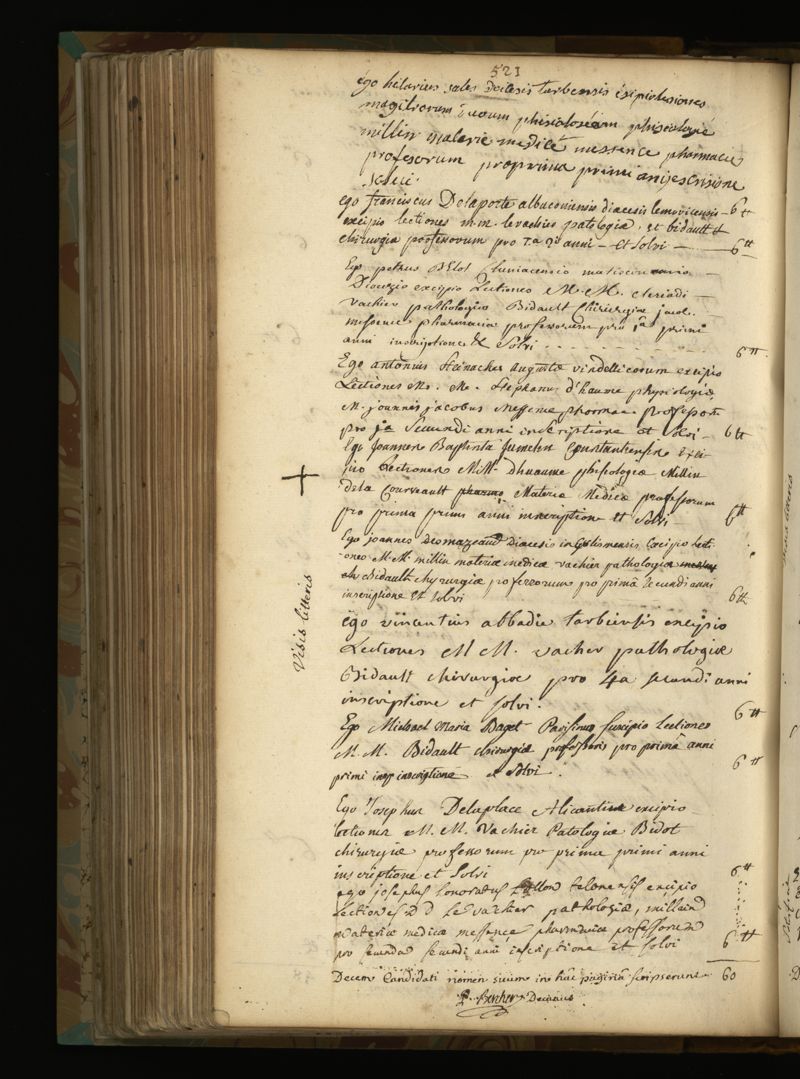 521
ego hilarius sales Docesis tarbensis exipio lesiones
magitrorum duaum phisiologiam phisiologiè
millin materie medicè messence pharmacie
profesorum pro prima primi anij escrisione
solui.
Ego franciscus Delaporte albuconiensis diacesis lemovicensis – 6 tt
excipio lectiones m.m. levachier patologiæ, et bidault
chirurgiæ professorum pro 1.a 2i anni – et solvi – 6 tt
Ego petrus Blot Cluniacensis matisconensis
Diocesio excipio Lectiones M.M. cleriadi
vachier pathologiæ Bidault Chirurgiæ jacob.
messence pharmacia professorum pro 1a primi
anni inscriptione & Solvi 6 tt
Ego antonius Steinacher augustæ vindellicorum excipio
Lectiones M. M. Stephanus d'haume physiologiæ,
M. joannis jacobus Messense pharmac professorum
pro ja Secundi anni inscriptione et Solvi – 6 tt
Ego Joannes Baptista Jumelin Constantiensis Exci
pio Lectiones M.M. Dhuaume phisologiæ Millin
dela Courveault pharma Materiæ Medicæ professorum
pro prima primi anni inscriptione et Solvi 6 tt
Ego joannes Desmazeaud Diacesis ingolismensis Excipio Lecti-
ones M.M. millin materiæ medicæ vachier pathologiæ
et Bidault chyrurgiæ professorum pro primâ secundi anni
inscriptione et solvi 6 tt
Visis litteris
Ego vincentius abbadie tarbiensis excipio
Lectiones M M. vacher pathologiæ
Bidault chirurgiæ pro 4a secundi anni
inscriptione et solvi. 6 tt
Ego Michael Maria Daget Parisinus suscipio Lectiones
M. M. Bidault chirurgiæ professoris pro primâ anni
primi insp inscriptione et Solvi. 6 tt
Ego Josephus Delaplace Alicantinus excipio
lectiones M. M. Vachier Patologiæ Bidot
chirurgiæ professorum pro prima primi anni
inscriptione et Solvi 6 tt
ego josephus honoratus telonensis excipio
lectiones d d Levachier pathologiæ, millain
materiæ medicæ messence pharmaciæ professorum
pro secunda secundi anni inscriptione et solvi 6 tt
Decem Candidati nomen suum in hac paginâ scripserunt 60
Decanus